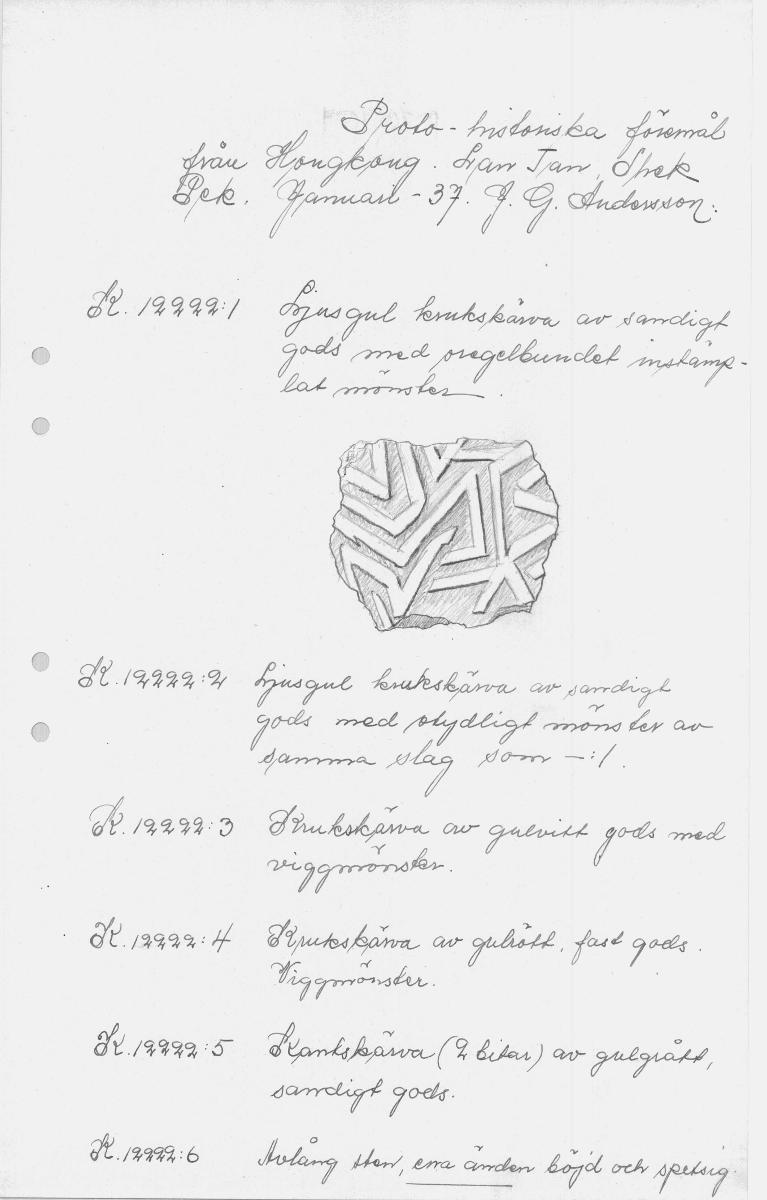 Proto-historiska föremål
från Hongkong. Lan Tau, Shek
Pek. Januari -37. J. G. Andersson.
K. 12222:1 Ljusgul krukskärva av sandigt
gods med oregelbundet instämp-
lat mönster.
K. 12222:2 Ljusgul krukskärva av sandigt
gods med otydligt mönster av
samma slag som -:1.
K. 12222:3 Krukskärva av gulvitt gods med
viggmönster.
K. 12222:4 Krukskärva av gulrött, fast gods.
Viggmönster.
K. 12222:5 Kantskärva (2 bitar) av gulgrått,
sandigt gods.
K. 12222:6 Avlång sten, ena änden böjd och spetsig